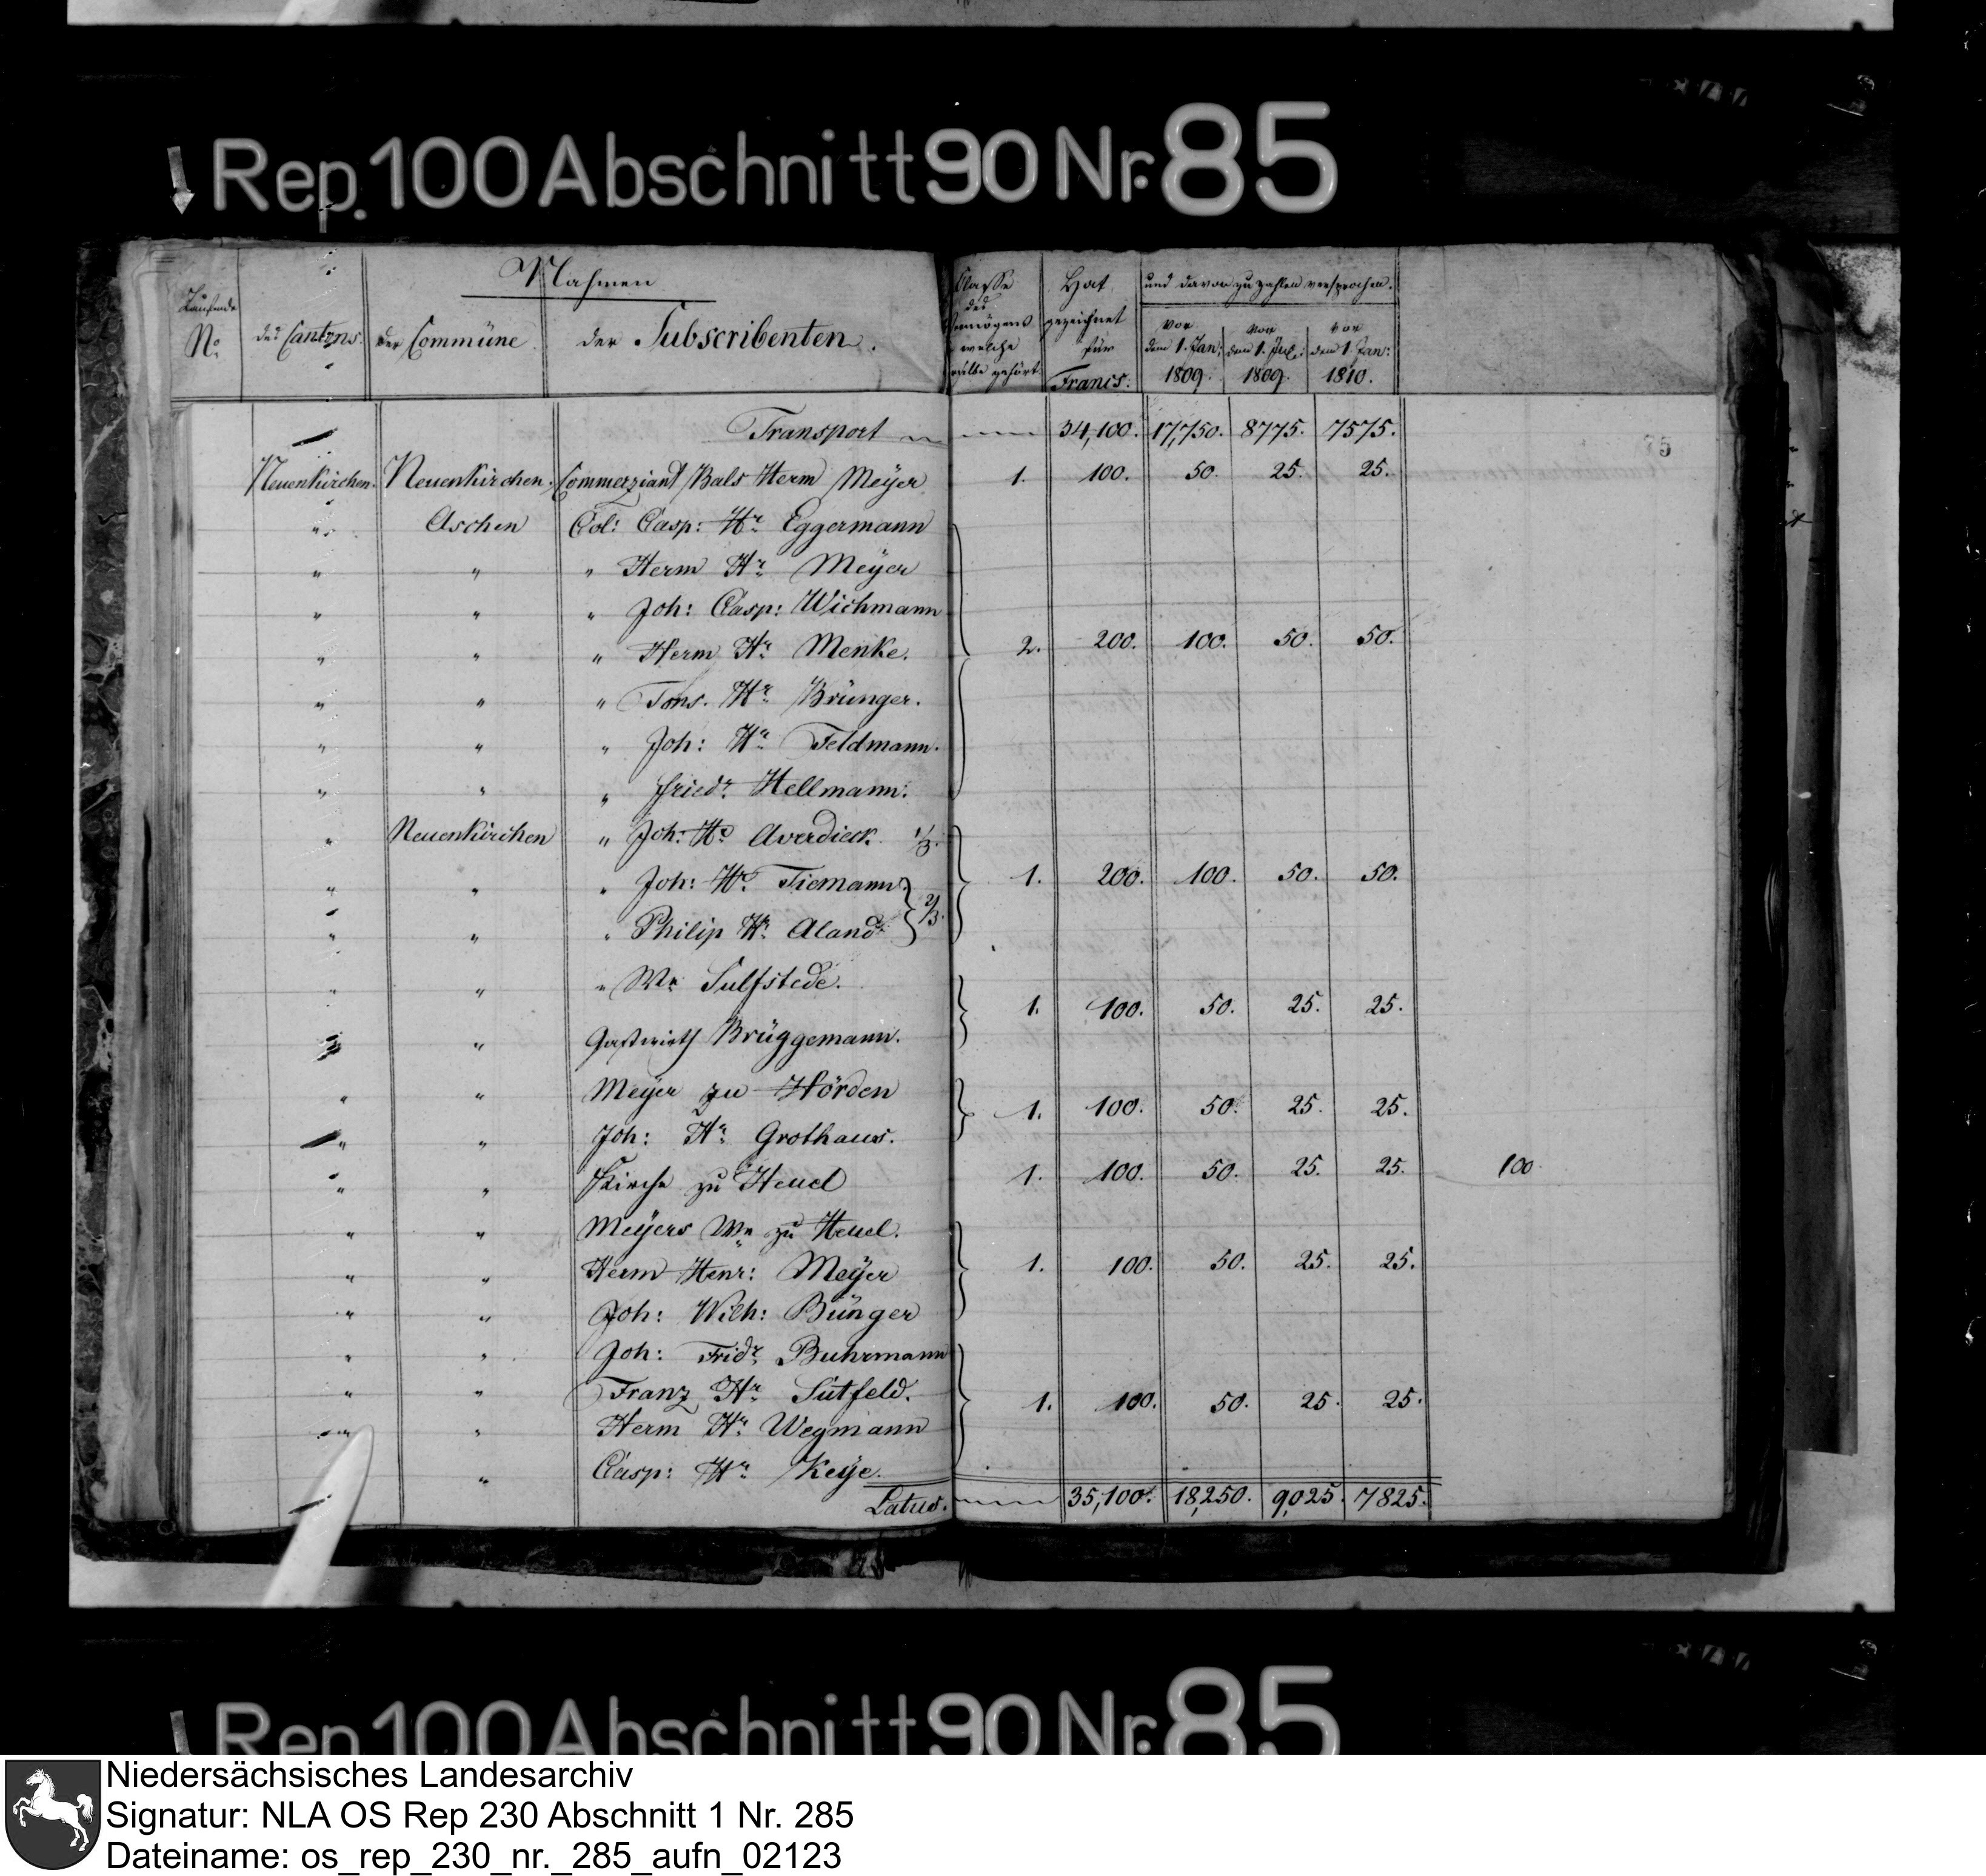 Rep. 100 Abschnitt 90 Nr. 85
Nahmen
Laufende No des Cantons der Commüne der Subscribenten.
Classe des Vermögens welche derselbe gehört
Hat gezeichnet für Francs.
und davon zu zahlen versprochen.
vor dem 1. Jan: 1809. vor dem 1. Jul: 1809. vor dem 1. Jan: 1810.
75
Transport 34,100. 17,750. 8775. 7575.
Neuenkirchen. Neuenkirchen. Commerziant Bals Herm Meÿer 1. 100. 50. 25. 25.
" Aschen Col: Casp: Hr. Eggermann
" " " Herm Hr. Meÿer
" " " Joh: Casp: Wichmann
" " " Herm Hr. Menke. 2. 200. 100. 50. 50.
" " " Tons. Hr. Brünger.
" " " Joh: Hr. Feldmann.
" " " Friedr. Hellmann.
" Neuenkirchen " Joh: Hr. Averdieck. 1/3.
" " " Joh: Hr. Tiemann 1. 200. 100. 50. 50.
" " " Philip Hr. Aland 2/3.
" " " Wn Sulfstede.
1. 100. 50. 25. 25.
" " Gastwirth Brüggemann.
" " Meÿer zu Hörden 1. 100. 50. 25. 25.
" " Joh: Hr. Grothaus.
" " Kirche zu Heuel 1. 100. 50. 25. 25. 100.
" " Meÿers Wn zu Heuel.
" " Herm Henr: Meÿer 1. 100. 50. 25. 25.
" " Joh: Wilh: Bünger
" " Joh: Fridr. Buhrmann
" " Franz Hr. Sutfeld. 1. 100. 50. 25. 25.
" " Herm Hr. Wegmann
" Casp: Hr. Keÿe.
Latus. 35,100. 18,250. 9,025. 7825.
Rep. 100 Abschnitt 90 Nr. 85
Niedersächsisches Landesarchiv
Signatur: NLA OS Rep 230 Abschnitt 1 Nr. 285
Dateiname: os_rep_230_nr._285_aufn_02123